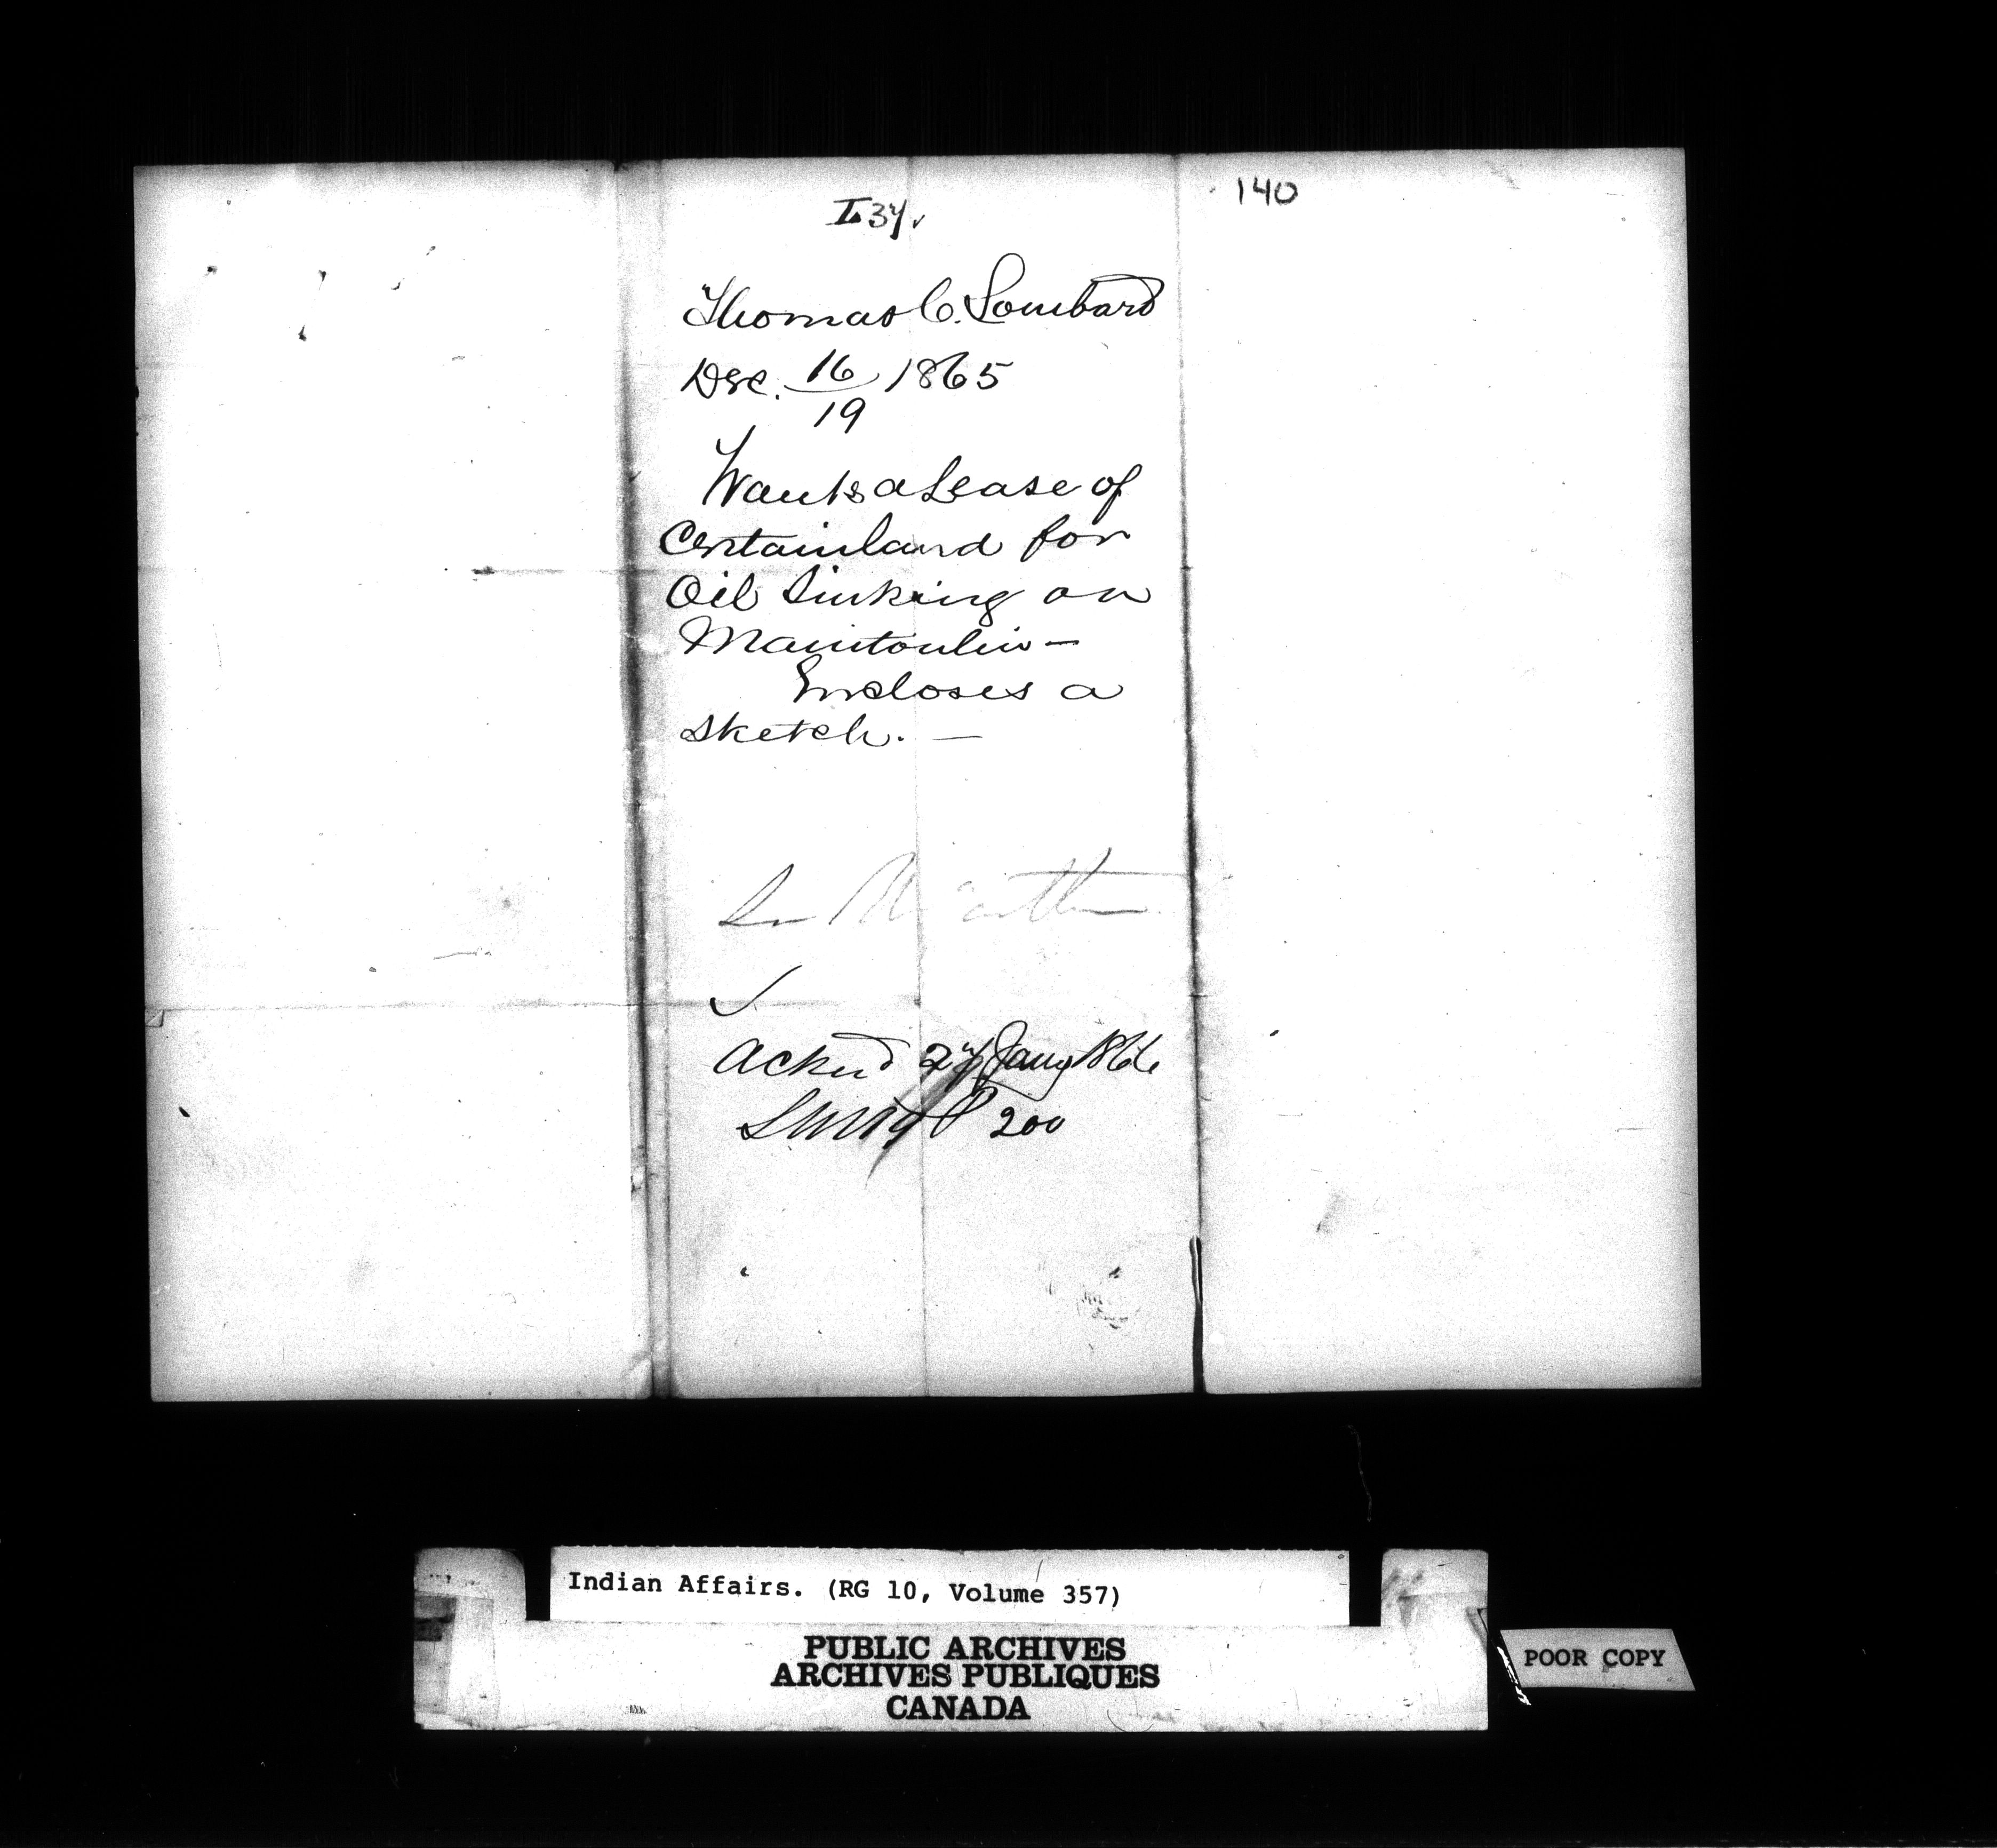 140
L 37.
Thomas C. Lombard
Dec. 16/19 1865
Wants a Lease of
Certain land for
Oil Sinking on
Manitoulin —
Encloses a
sketch. —
Ackd 27 Jany 1866
P 200
Indian Affairs. (RG 10, Volume 357)
PUBLIC ARCHIVES
ARCHIVES PUBLIQUES
CANADA
POOR COPY